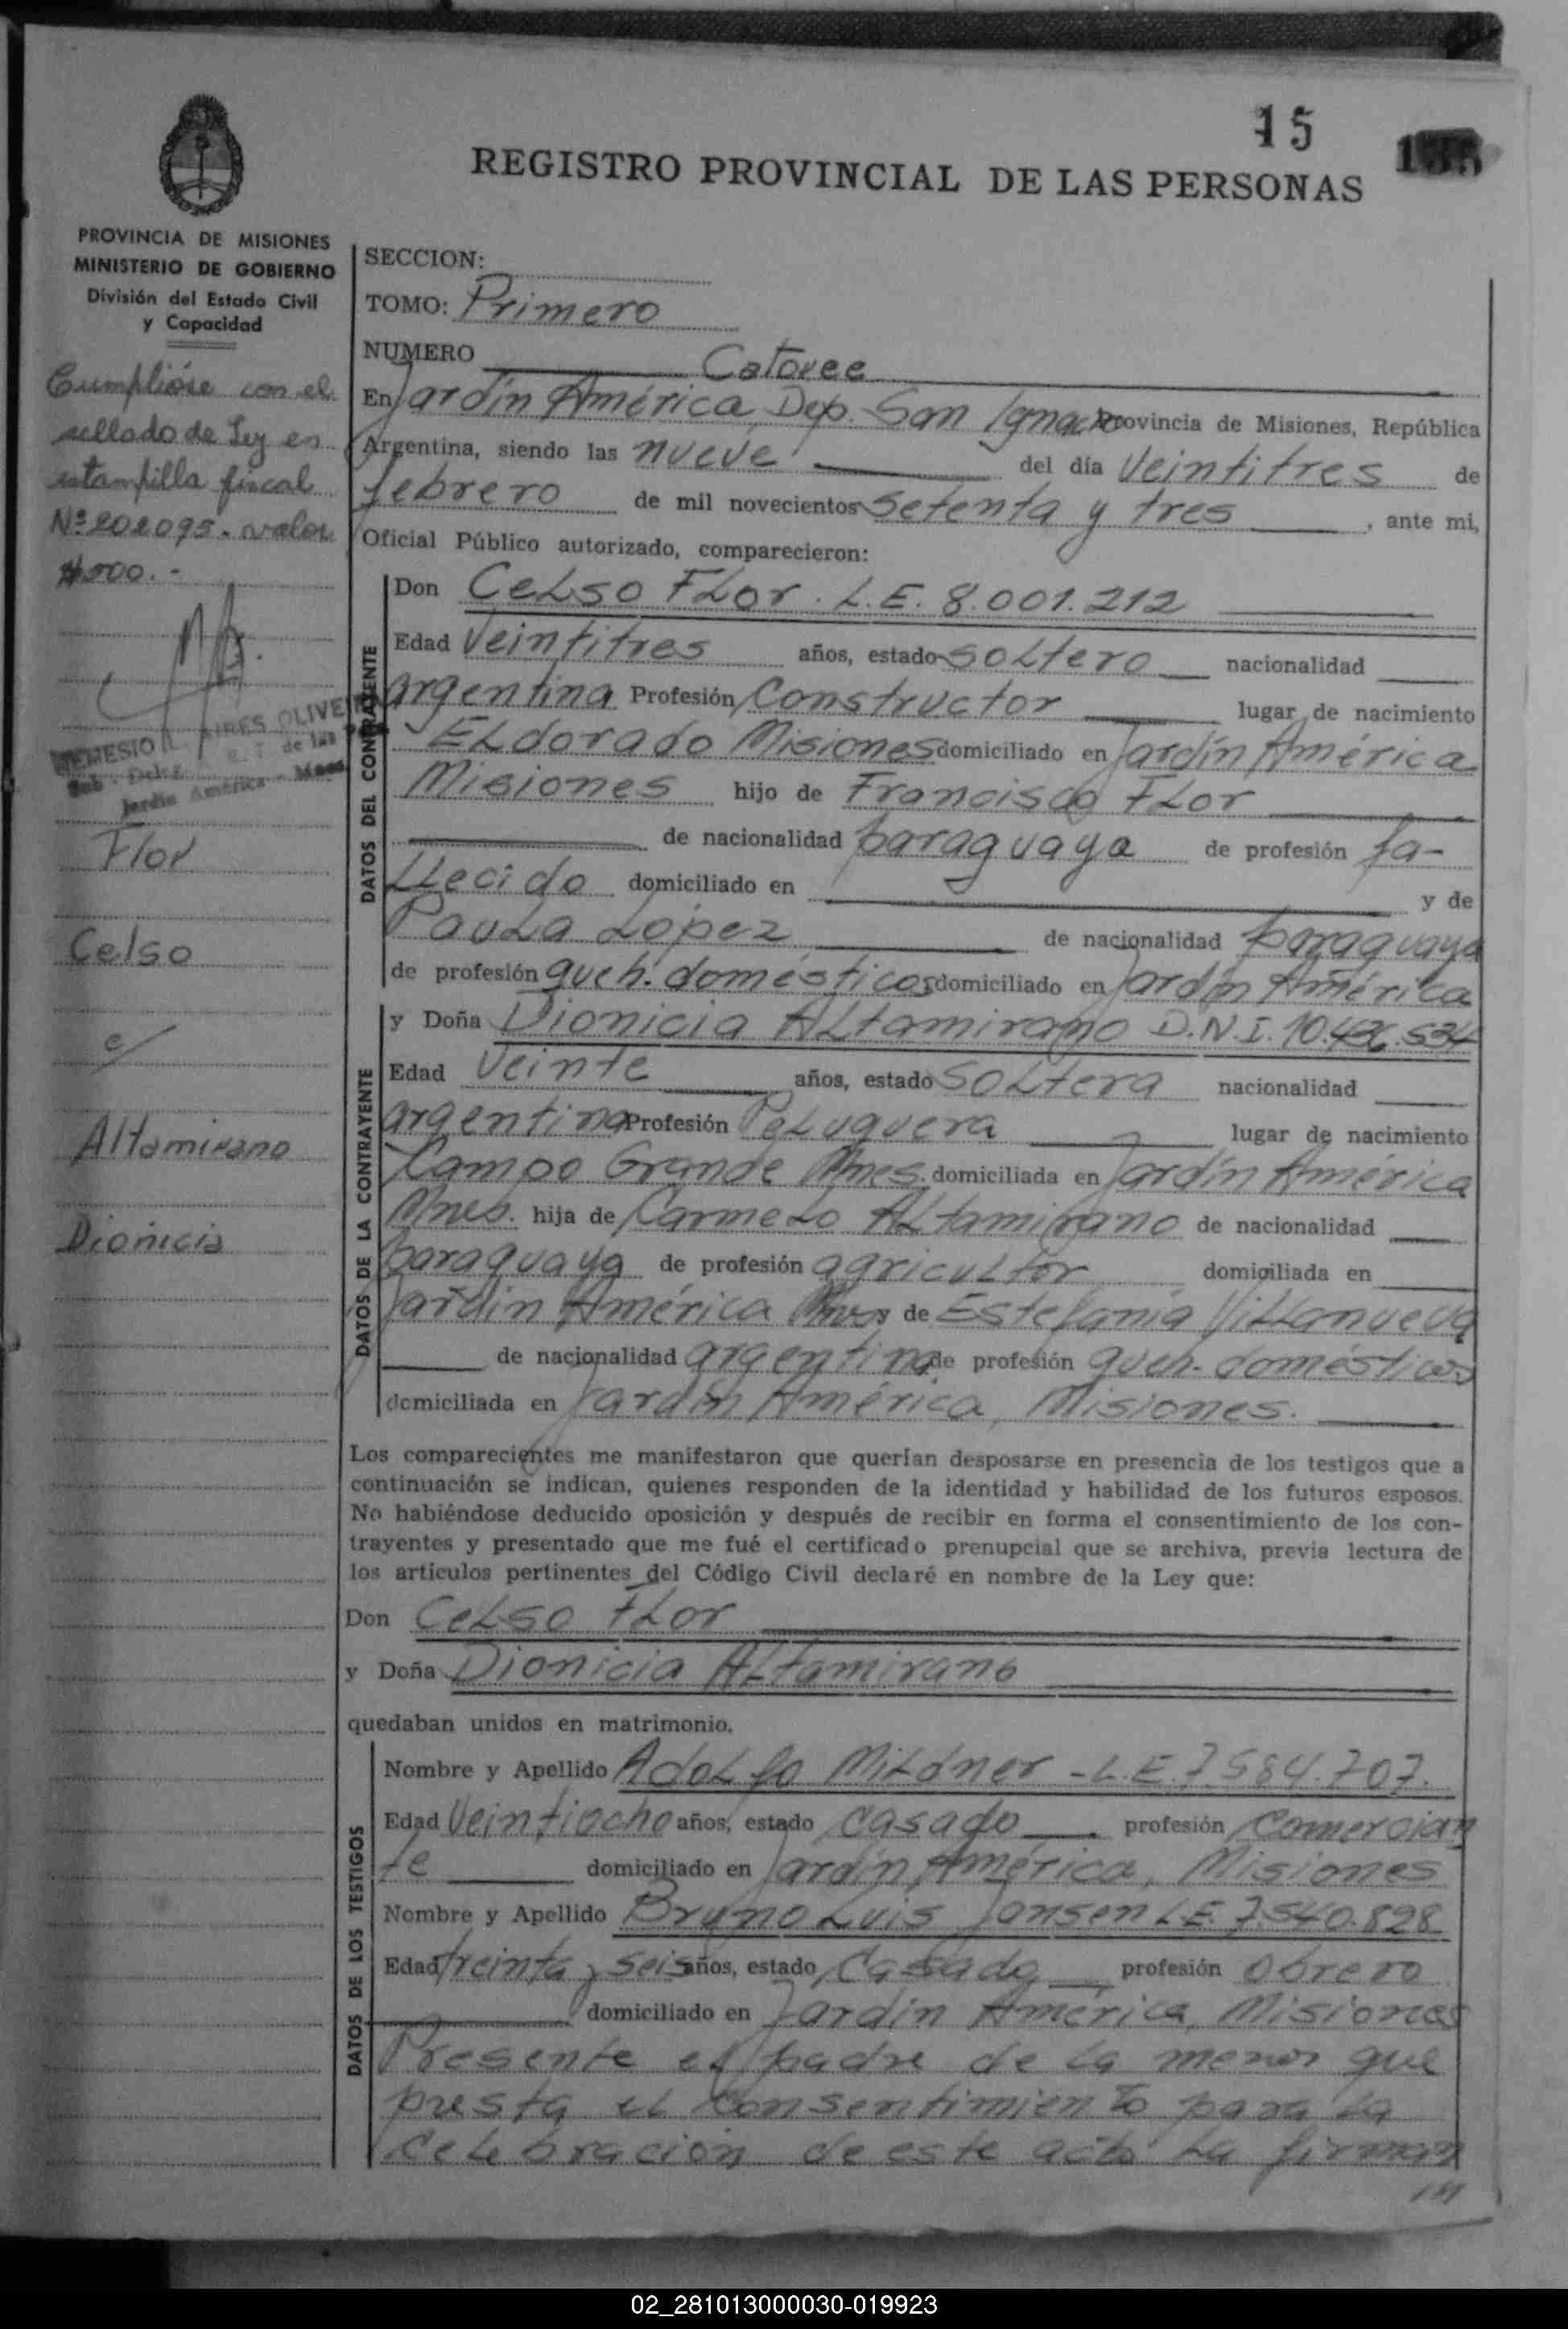 15
REGISTRO PROVINCIAL DE LAS PERSONAS
PROVINCIA DE MISIONES
MINISTERIO DE GOBIERNO
División del Estado Civil
y Capacidad
Cumplióse con el
sellado de Ley en
estampilla fiscal
Nº 202095.- valor
Flor
Celso
c/
Altamirano
Dionicia
SECCION:
TOMO: Primero
NUMERO Catorce
En Jardín América, Dep. San Ignacio Provincia de Misiones, República
Argentina, siendo las nueve del día Veintitres de
febrero de mil novecientos setenta y tres, ante mi,
Oficial Público autorizado, comparecieron:
DATOS DEL CONTRAYENTE
Don Celso Flor. L.E. 8.001.212
Edad Veintitres años, estado soltero nacionalidad
argentina Profesión Constructor lugar de nacimiento
Eldorado Misiones domiciliado en Jardín América
Misiones hijo de Francisco Flor
de nacionalidad paraguaya de profesión fa-
llecido domiciliado en y de
Paula López de nacionalidad paraguaya
de profesión queh. domésticos domiciliado en Jardín América
DATOS DE LA CONTRAYENTE
y Doña Dionicia Altamirano D.N.I. 10.436.534
Edad Veinte años, estado soltera nacionalidad
argentina Profesión Peluquera lugar de nacimiento
Campo Grande Mnes. domiciliada en Jardín América
Mnes. hija de Carmelo Altamirano de nacionalidad
paraguaya de profesión agricultor domiciliada en
Jardín América Mnes y de Estefanía Villanueva
de nacionalidad argentina de profesión queh. domésticos
domiciliada en Jardín América, Misiones.
Los comparecientes me manifestaron que querían desposarse en presencia de los testigos que a
continuación se indican, quienes responden de la identidad y habilidad de los futuros esposos.
No habiéndose deducido oposición y después de recibir en forma el consentimiento de los con-
trayentes y presentado que me fué el certificado prenupcial que se archiva, previa lectura de
los artículos pertinentes del Código Civil declaré en nombre de la Ley que:
Don Celso Flor
y Doña Dionicia Altamirano
quedaban unidos en matrimonio.
DATOS DE LOS TESTIGOS
Nombre y Apellido Adolfo Mildner - L.E. 7.584.707.
Edad Veintiocho años, estado casado profesión Comercian
te domiciliado en Jardín América, Misiones
Nombre y Apellido Bruno Luis Jonsen L.E. 7.540.828
Edad treinta y seis años, estado Casado profesión Obrero
domiciliado en Jardín América, Misiones
Presente el padre de la menor que
presta el consentimiento para la
celebración de este acto la firman
02_281013000030-019923